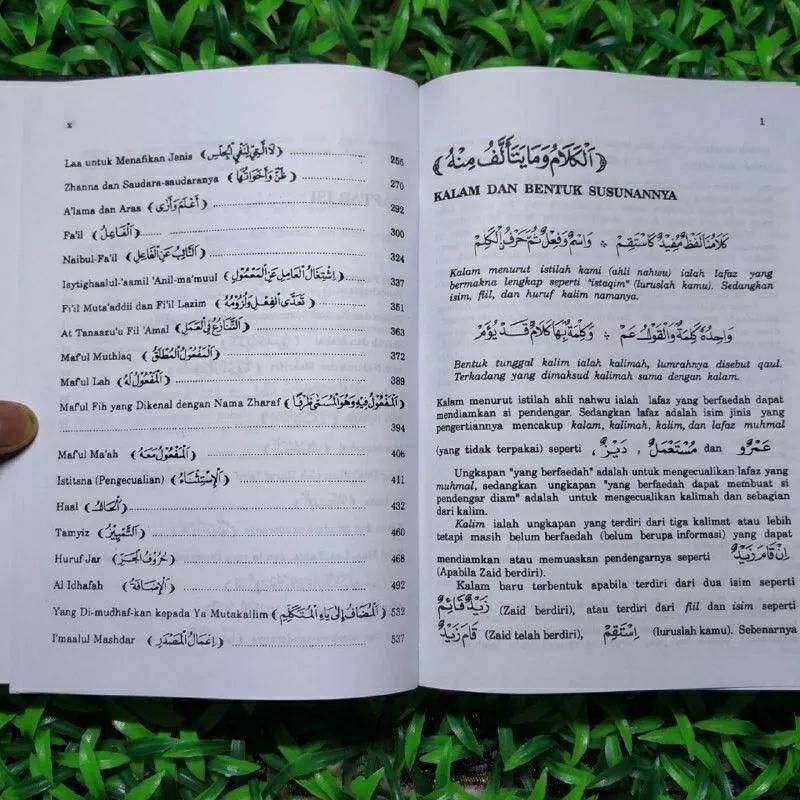 x
Laa untuk Menafikan Jenis ( لَا الَّتِيْ لِنَفْيِ الْجِنْسِ ) .................... 255
Zhanna dan Saudara-saudaranya ( ظَنَّ وَأَخَوَاتُهَا ) .................... 270
A'lama dan Araa ( أَعْلَمَ وَأَرَى ) .................... 292
Fa'il ( اَلْفَاعِلُ ) .................... 300
Naibul-Fa'il ( اَلنَّائِبُ عَنِ الْفَاعِلِ ) .................... 324
Isytighaalul-'aamil 'Anil-ma'muul ( اِشْتِغَالُ الْعَامِلِ عَنِ الْمَعْمُوْلِ ) .......... 337
Fi'il Muta'addii dan Fi'il Lazim ( تَعَدِّى الْفِعْلِ وَلُزُوْمُهُ ) .......... 351
At Tanaazu'u Fil 'Amal ( اَلتَّنَازُعُ فِى الْعَمَلِ ) .................... 363
Maf'ul Muthlaq ( اَلْمَفْعُوْلُ الْمُطْلَقُ ) .................... 372
Maf'ul Lah ( اَلْمَفْعُوْلُ لَهُ ) .................... 389
Maf'ul Fih yang Dikenal dengan Nama Zharaf ( اَلْمَفْعُوْلُ فِيْهِ وَهُوَ الْمُسَمَّى ظَرْفًا )
.................... 394
Maf'ul Ma'ah ( اَلْمَفْعُوْلُ مَعَهُ ) .................... 406
Istitsna (Pengecualian) ( اَلْإِسْتِثْنَاءُ ) .................... 411
Haal ( اَلْحَالُ ) .................... 432
Tamyiz ( اَلتَّمْيِيْزُ ) .................... 460
Huruf Jar ( حُرُوْفُ الْجَرِّ ) .................... 468
Al Idhafah ( اَلْإِضَافَةُ ) .................... 492
Yang Di-mudhaf-kan kepada Ya Mutakallim ( اَلْمُضَافُ إِلَى يَاءِ الْمُتَكَلِّمِ ) 532
I'maalul Mashdar ( إِعْمَالُ الْمَصْدَرِ ) .................... 537
1
﴿ اَلْكَلَامُ وَمَا يَتَأَلَّفُ مِنْهُ ﴾
KALAM DAN BENTUK SUSUNANNYA
كَلَامُنَا لَفْظٌ مُفِيْدٌ كَاسْتَقِمْ ❊ وَاسْمٌ وَفِعْلٌ ثُمَّ حَرْفٌ الْكَلِمْ
Kalam menurut istilah kami (ahli nahwu) ialah lafaz yang
bermakna lengkap seperti "istaqim" (luruslah kamu). Sedangkan
isim, fiil, dan huruf kalim namanya.
وَاحِدُهُ كَلِمَةٌ وَالْقَوْلُ عَمْ ❊ وَكَلْمَةٌ بِهَا كَلَامٌ قَدْ يُؤَمْ
Bentuk tunggal kalim ialah kalimah, lumrahnya disebut qaul.
Terkadang yang dimaksud kalimah sama dengan kalam.
Kalam menurut istilah ahli nahwu ialah lafaz yang berfaedah dapat
mendiamkan si pendengar. Sedangkan lafaz adalah isim jinis yang
pengertiannya mencakup kalam, kalimah, kalim, dan lafaz muhmal
(yang tidak terpakai) seperti دَيْزٌ ، مُسْتَعْمَلٌ dan عَمْرٌو
Ungkapan "yang berfaedah" adalah untuk mengecualikan lafaz yang
muhmal, sedangkan ungkapan "yang berfaedah dapat membuat si
pendengar diam" adalah untuk mengecualikan kalimah dan sebagian
dari kalim.
Kalim ialah ungkapan yang terdiri dari tiga kalimat atau lebih
tetapi masih belum berfaedah (belum berupa informasi) yang dapat
mendiamkan atau memuaskan pendengarnya seperti اِنْ قَامَ زَيْدٌ
(Apabila Zaid berdiri).
Kalam baru terbentuk apabila terdiri dari dua isim seperti
زَيْدٌ قَائِمٌ (Zaid berdiri), atau terdiri dari fiil dan isim seperti
قَامَ زَيْدٌ (Zaid telah berdiri), اِسْتَقِمْ (luruslah kamu). Sebenarnya